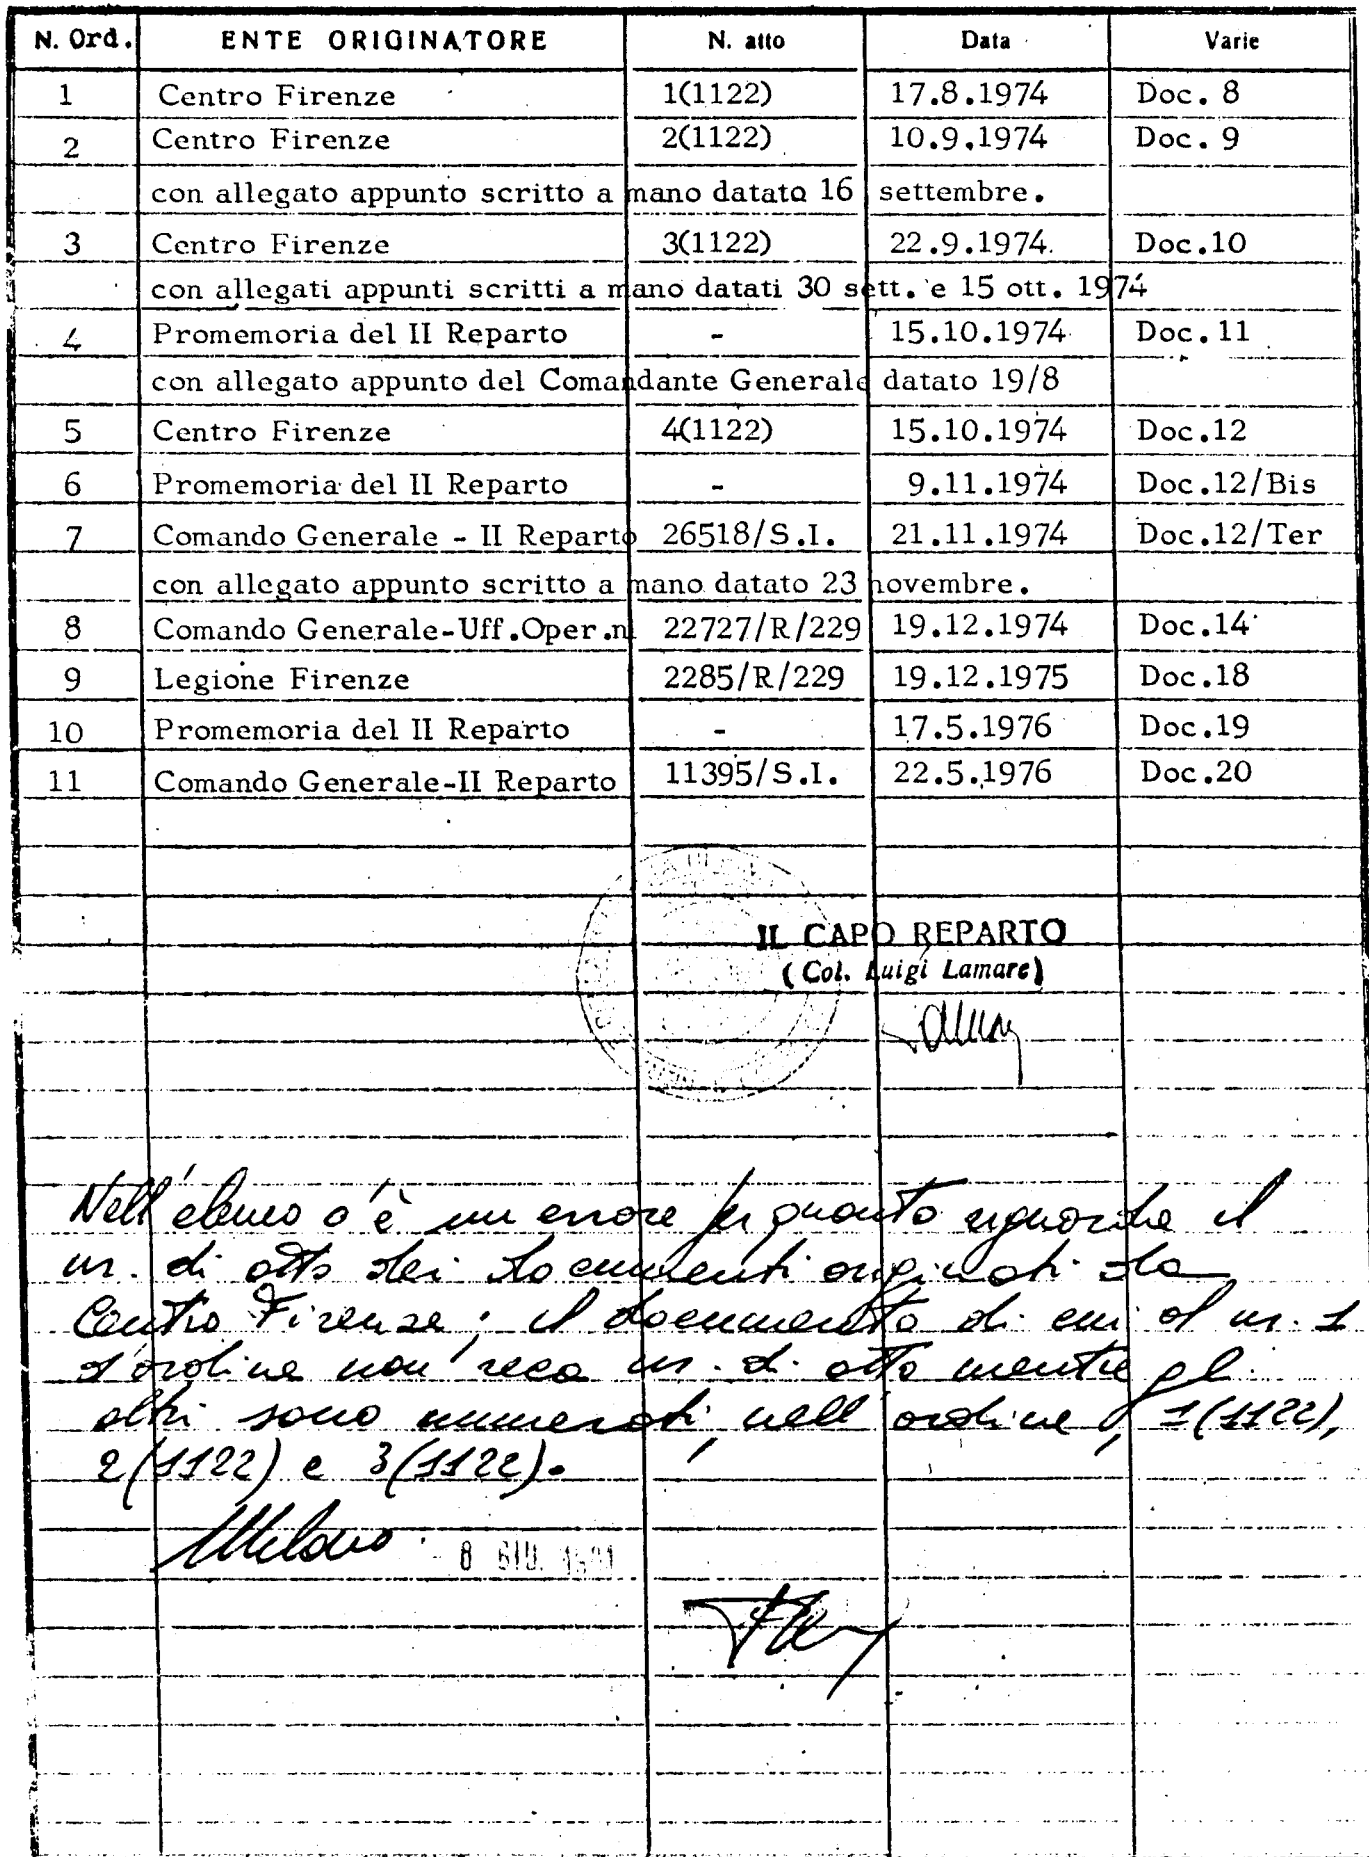 N. Ord. ENTE ORIGINATORE N. atto Data Varie
1 Centro Firenze 1(1122) 17.8.1974 Doc. 8
2 Centro Firenze 2(1122) 10.9.1974 Doc. 9
con allegato appunto scritto a mano datato 16 settembre.
3 Centro Firenze 3(1122) 22.9.1974. Doc.10
con allegati appunti scritti a mano datati 30 sett. e 15 ott. 1974
4 Promemoria del II Reparto - 15.10.1974 Doc. 11
con allegato appunto del Comandante Generale datato 19/8
5 Centro Firenze 4(1122) 15.10.1974 Doc.12
6 Promemoria del II Reparto - 9.11.1974 Doc.12/Bis
7 Comando Generale - II Reparto 26518/S.I. 21.11.1974 Doc.12/Ter
con allegato appunto scritto a mano datato 23 novembre.
8 Comando Generale-Uff.Oper.n 22727/R/229 19.12.1974 Doc.14
9 Legione Firenze 2285/R/229 19.12.1975 Doc.18
10 Promemoria del II Reparto - 17.5.1976 Doc.19
11 Comando Generale-II Reparto 11395/S.I. 22.5.1976 Doc.20
IL CAPO REPARTO
(Col. Luigi Lamare)
Nell'elenco c'è un errore per quanto riguarda il
nr. di atto dei documenti originati da
Centro Firenze; il documento di cui al nr. 1
d'ordine non reca nr. di atto mentre gli
altri sono numerati, nell'ordine, 1(1122),
2(1122) e 3(1122).
Milano 8 GIU. 1981